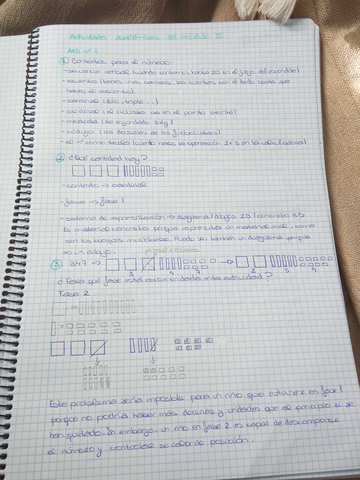 Actividades académicas del módulo II
Act nº 1
① Contextos para el número:
- secuencia verbal (cuando contamos hasta 20 en el juego del escondite)
- recuento (
- cardinal (
- ordinal (el ciclista va en
- medida (he engordado 3kg)
- código (los dorsales de los futbolistas)
- el nº como tecla (cuando hago la operación 2x3 en la calculadora)
② ¿Qué cantidad hay?
- contexto → cardinal
- fase → fase 1
- sistema de representación → diagrama/dibujo 2D / concreto 3D
Es material concreto porque representa un material real, como
son los bloques multibase. Puede ser también un diagrama porque
es un dibujo.
③ 347 →
¿Para qué fase está recomendada esta actividad?
Fase 2
Este problema sería imposible para un niño que estuviera en fase 1
porque no podría haber más decenas y unidades que al principio si se
han quitado. Sin embargo, un niño en fase 2 es capaz de descomponer
el número y controlar su valor de posición.